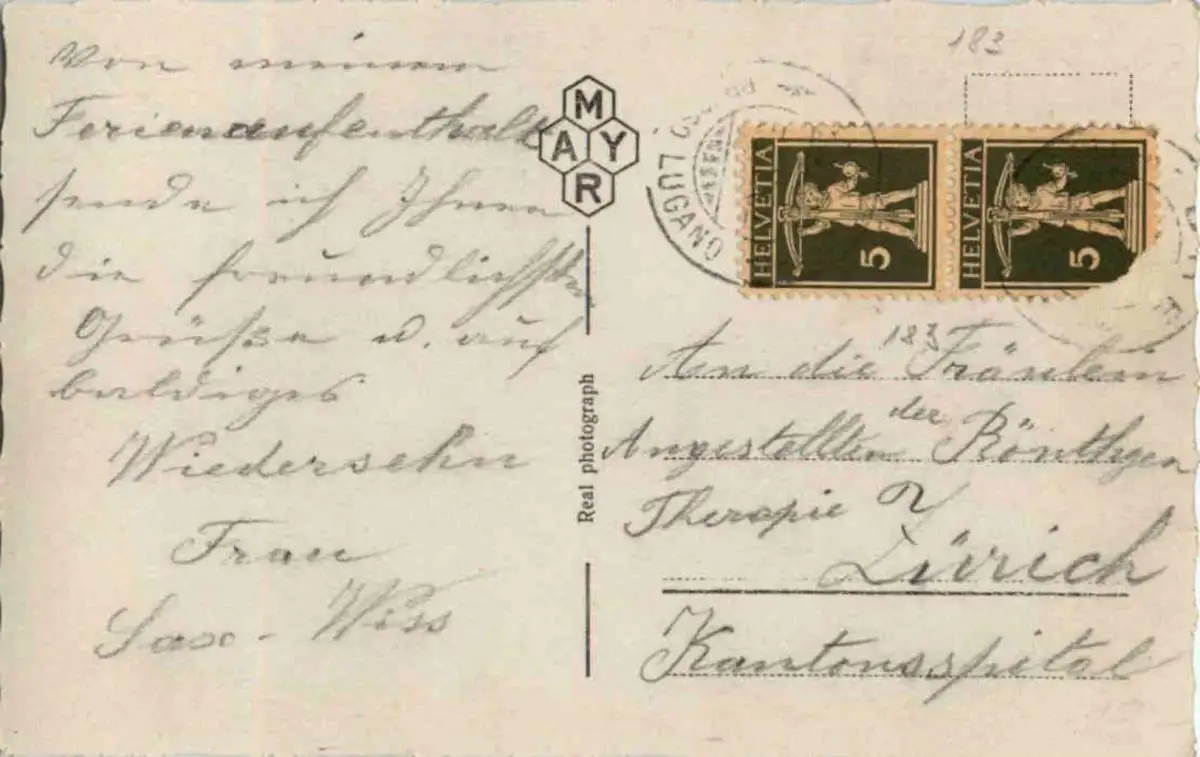 Von meinem
Ferienaufenthalt
sende ich Ihnen
die freundlichsten
Grüße u. auf
baldiges
Wiedersehn
Frau
Sax - Wiss
MAYR
Real photograph
183
LUGANO
HELVETIA
5
HELVETIA
5
183
An die Fräulein
Angestellten der Rönthgen
Therapie
Zürich
Kantonsspital